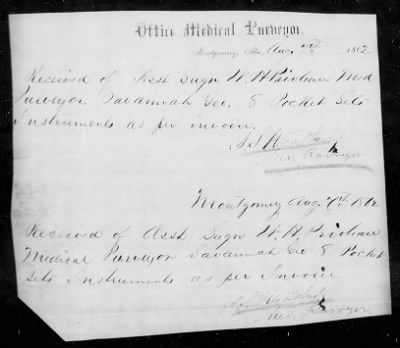 Office Medical Purveyor.
Montgomery, Ala. Aug. 7th 1862
Received of Asst Surgn W. H. Prioleau Med
Purveyor Savannah Geo. 8 Pocket Sets
Instruments as per invoice.
Med. Purveyor
Montgomery Aug 7th 1862
Received of Asst Surgn W. H. Prioleau
Medical Purveyor Savannah Geo 8 Pocket
Sets Instruments as per Invoice
Med. Purveyor